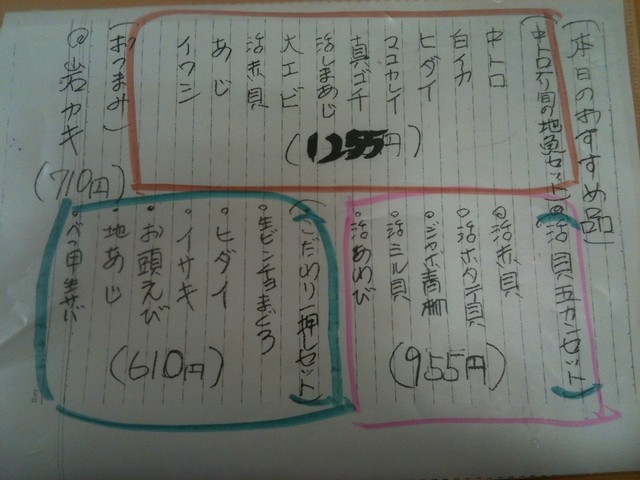 (本日のおすすめ品)
(中トロ入旬の地魚セット)
中トロ
白イカ
ヒダイ
マコカレイ
真ゴチ
活しまあじ
大エビ
活赤貝
あじ
イワシ
(1255円)
(おつまみ)
◎岩カキ
(710円)
◎(活貝五カンセット)
◎活赤貝
◎活ホタテ貝
◎ジャボ青柳
◎活ミル貝
•活あわび
(955円)
(こだわり一押しセット)
•生ビンチョまぐろ
•ヒダイ
•イサキ
•お頭えび
•地あじ
•ベッ甲
(610円)